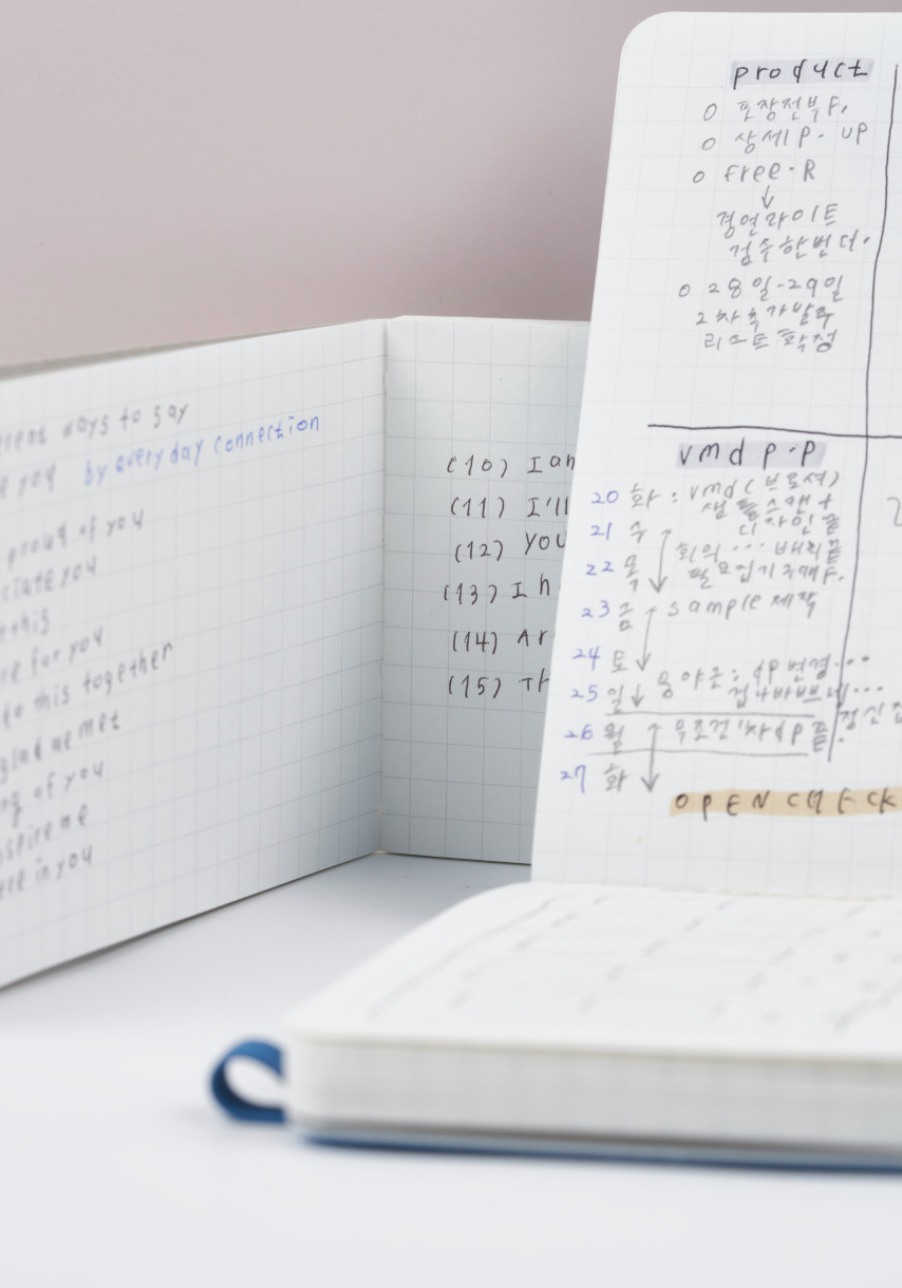 days to say
you by everyday connection
proud of you
ciate you
this
re for you
to this together
glad we met
ng of you
nspire me
ere in you
(10) I am
(11) I'll
(12) You
(13) I h
(14) Ar
(15) Th
product
o 포장전부F.
o 상세P. UP
o Free.R
↓
경연라이트
검수한번더.
o 28일-29일
2차추가발주
리스트 확정
vmd p.p
20 화 : vmd(브로셔)
샘플스캔+
21 수 디자인 끝
회의... 배치끝
22 목 필요집기구매F.
23 금 sample 제작
24 토
25 일 dp변경...
겁나바쁘네...
26 월 무조건 1차dp끝.
정신
27 화
OPEN CHECK